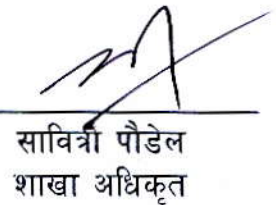 सावित्री पौडेल
शाखा अधिकृत